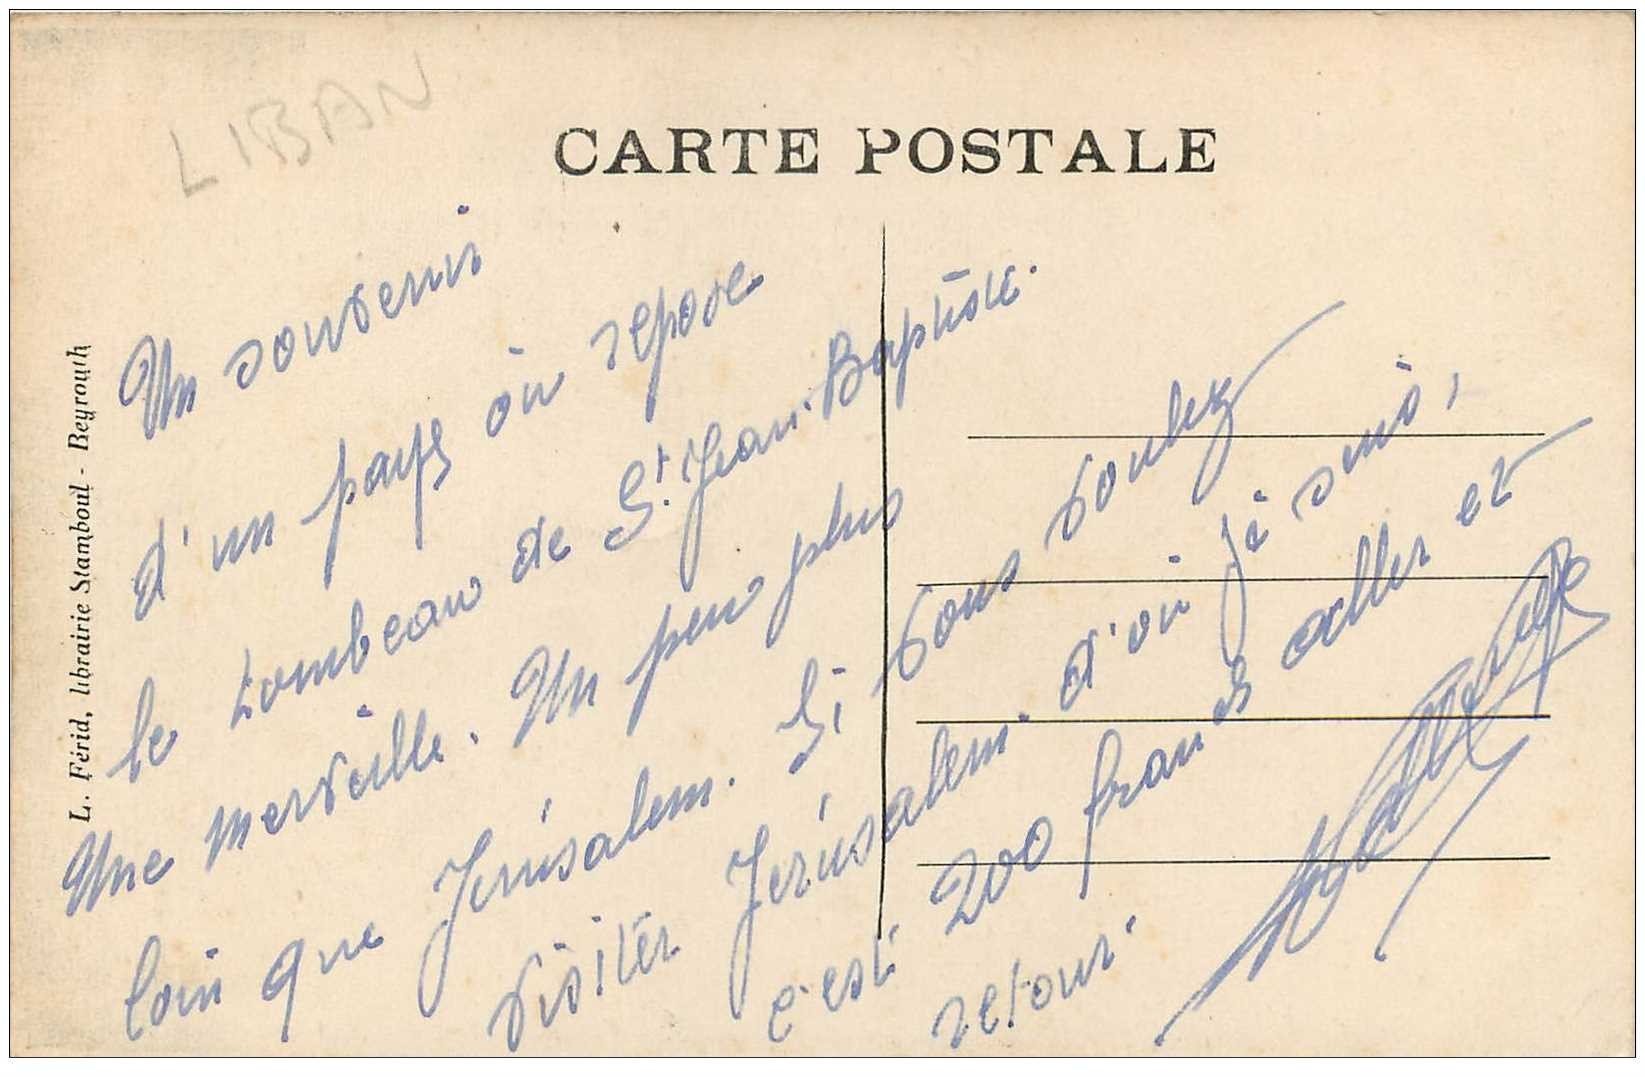 LIBAN
CARTE POSTALE
L. Férid, librairie Stamboul - Beyrouth
Un souvenir
d'un pays où repose
le tombeau de St. Jean-Baptiste.
Une merveille. Un peu plus
loin que Jérúsalem. Si vous voulez
visiter Jerúsalem. d'où je suis,
c'est 200 francs aller et
retour.